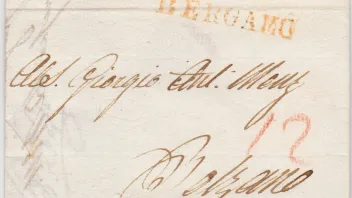 BERGAMO
Al Sig. Giorgio Ant. Menz
12
Bolzano